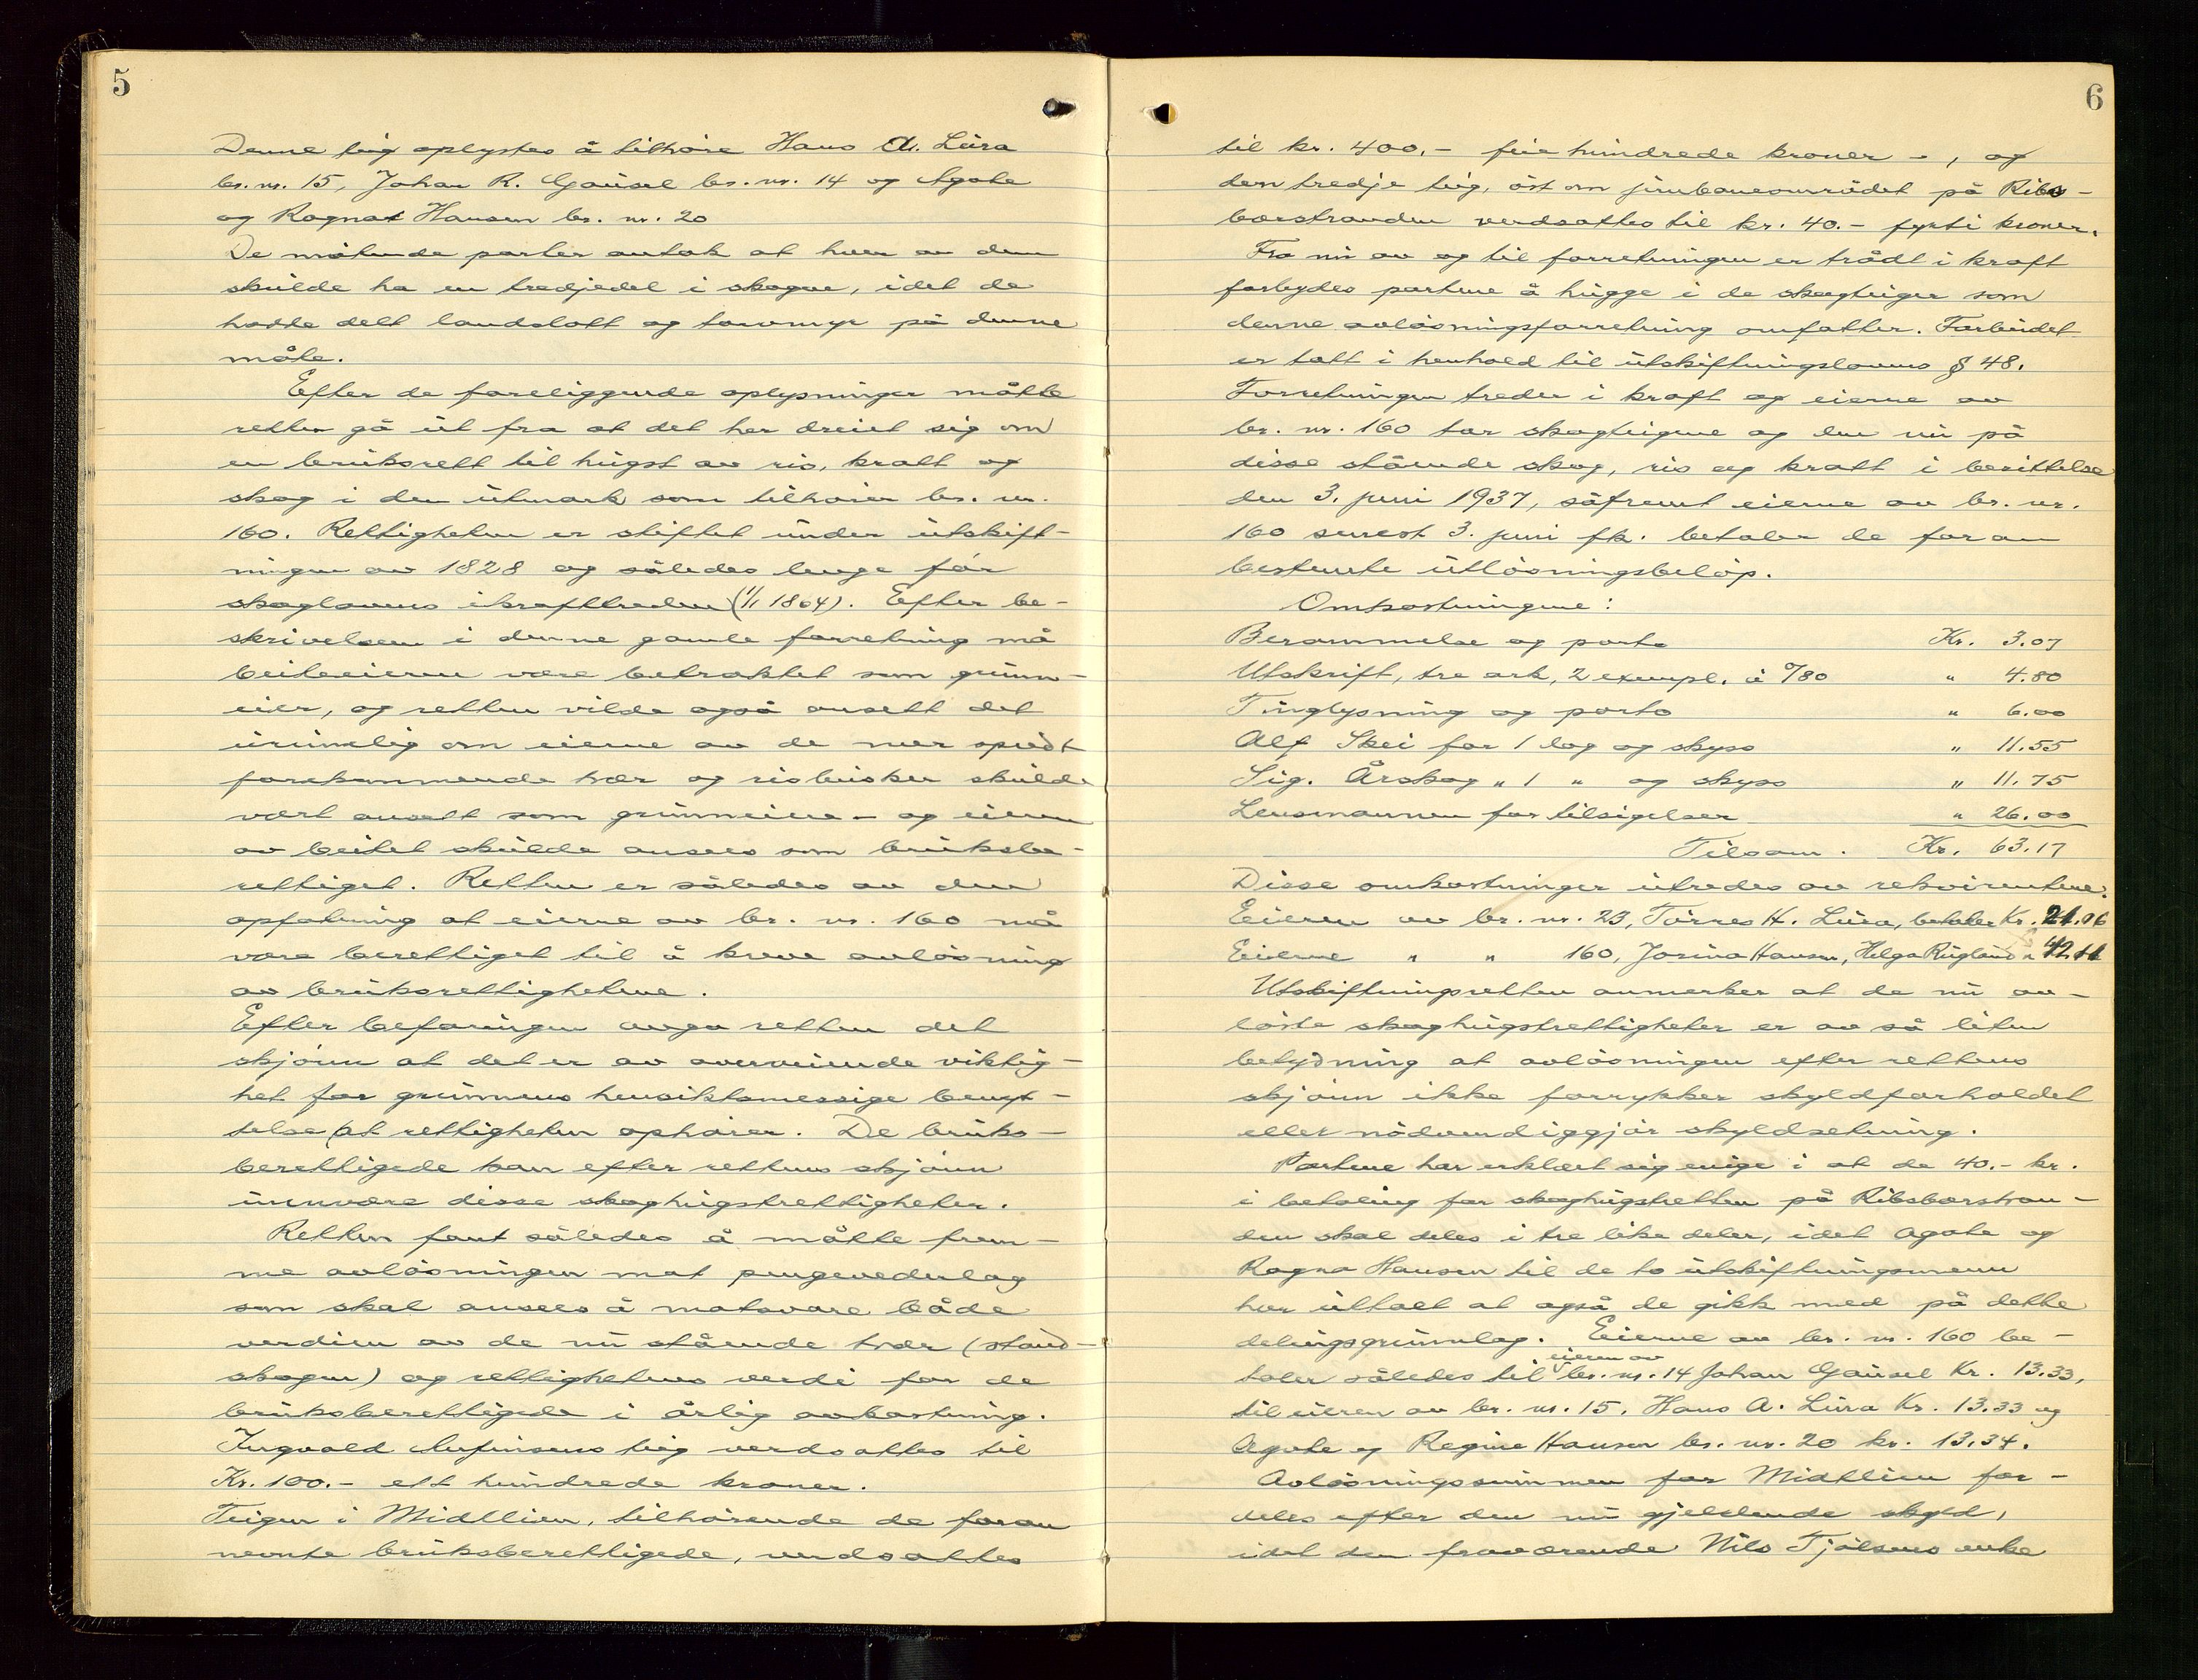 5
Denne teig oplystes å tilhøre Hans A. Lura
br. nr. 15, Johan R. Gausel br. nr. 14 og Agate
og Ragna Hansen br. nr. 20
De møtende parter antok at hver av dem
skulde ha en tredjedel i skogen, idet de
hadde delt landslott og torvmyr på denne
måte.
Efter de foreliggende oplysninger måtte
retten gå ut fra at det her dreiet sig om
en bruksrett til hugst av ris, kratt og
skog i den utmark som tilhører br. nr.
160. Rettigheten er stiftet under utskift-
ningen av 1828 og således lenge før
skoglovens ikrafttreden (1/1 1864). Efter be-
skrivelsen i denne gamle forretning må
beiteeieren være betraktet som grunn-
eier, og retten vilde også ansett det
urimelig om eierne av de mer spredt
forekommende trær og risbusker skulde
vært ansett som grunneiere - og eieren
av beitet skulde ansees som bruksbe-
rettiget. Retten er således av den
opfatning at eierne av br. nr. 160 må
være berettiget til å kreve avløsning
av bruksrettighetene.
Efter befaringen avga retten det
skjønn at det er av overveiende viktig-
het for grunnens hensiktsmessige benyt-
telse at rettigheten ophører. De bruks-
berettigede kan efter rettens skjønn
unnvære disse skoghugstrettigheter.
Retten fant således å måtte frem-
me avløsningen mot pengevederlag
som skal ansees å motsvare både
verdien av de nu stående trær (stand-
skogen) og rettighetens verdi for de
bruksberettigede i årlig avkastning.
Ingvald Aufinsens teig verdsattes til
Kr. 100.- ett hundrede kroner.
Teigen i Midtlien, tilhørende de foran
nevnte bruksberettigede, verdsattes
6
til kr. 400.- fire hundrede kroner -, og
den tredje teig, øst om jernbaneområdet på Ribs-
borstranden verdsattes til kr. 40.- fyrti kroner.
Fra nu av og til forretningen er trådt i kraft
forbydes partene å hugge i de skogteiger som
denne avløsningsforretning omfatter. Forbudet
er tatt i henhold til utskiftningslovens § 48.
Forretningen treder i kraft og eierne av
br. nr. 160 tar skogteigene og den nu på
disse stående skog, ris og kratt i besittelse
den 3. juni 1937, såfremt eierne av br. nr.
160 senest 3. juni fk. betaler de foran
bestemte utløsningsbeløp.
Omkostningene:
Berammelse og porto Kr. 3.07
Utskrift, tre ark, 2 exempl. à 0/80 " 4.80
Tinglysning og porto " 6.00
Alf Skei for 1 dag og skyss " 11.55
Sig. Årskog " 1 " og skyss " 11.75
Lensmannen for tilsigelser " 26.00
Tilsam. Kr. 63.17
Disse omkostninger utredes av rekvirentene:
Eieren av br. nr. 23, Tørres H. Lura, betaler Kr. 21.06
Eierne " " 160, Jorina Hansen, Helga Rugland " 42.11
Utskiftningsretten anmerker at de nu av-
løste skoghugstrettigheter er av så liten
betydning at avløsningen efter rettens
skjønn ikke forrykker skyldforholdet
eller nødvendiggjør skyldsetning.
Partene har erklært sig enige i at de 40.- kr.
i betaling for skoghugstretten på Ribsborstran-
den skal deles i tre like deler, idet Agate og
Ragna Hansen til de to utskiftningsmenn
har uttalt at også de gikk med på dette
delingsgrunnlag. Eierne av br. nr. 160 be-
eieren av
taler således til br. nr. 14 Johan Gausel Kr. 13.33,
til eieren av br. nr. 15, Hans A. Lura Kr. 13.33 og
Agate og Regine Hansen br. nr. 20 kr. 13.34.
Avløsningssummen for Midtlien for-
deles efter den nu gjeldende skyld,
idet den fraværende Nils Tjølsens enke